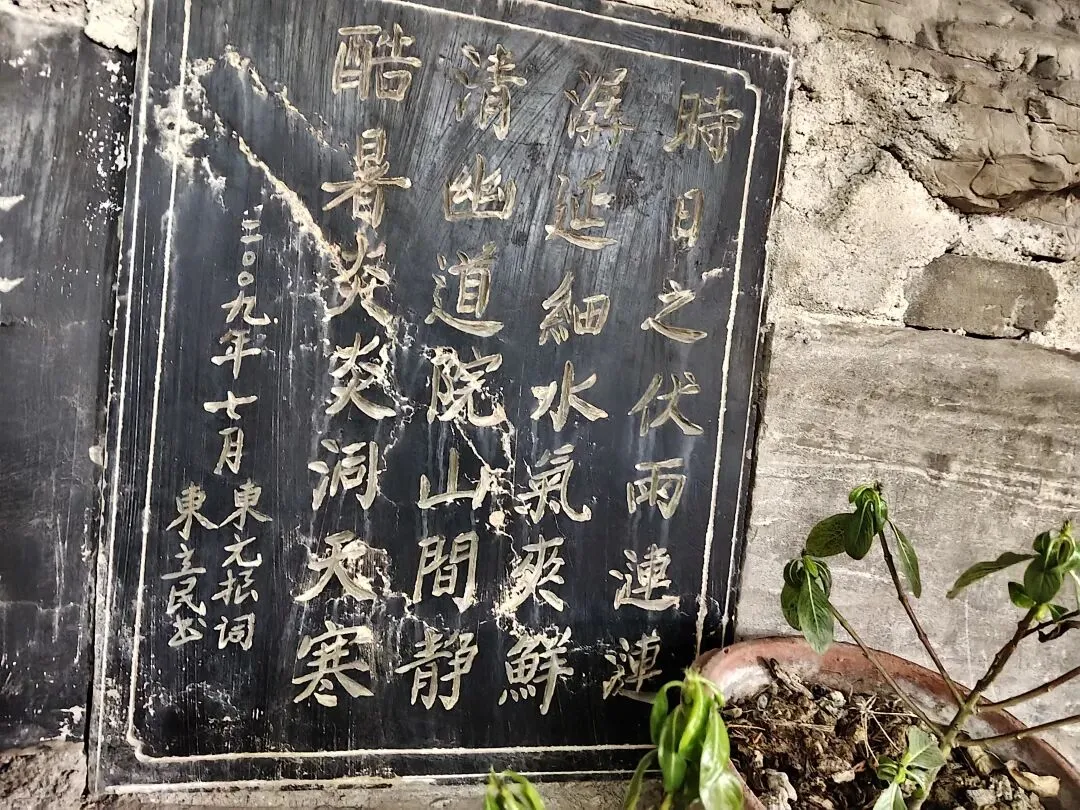 時日之伏雨連漣
潺延細水氣爽鮮
清幽道院山間靜
酷暑炎炎洞天寒
二〇〇九年七月
東元振词
東立民书